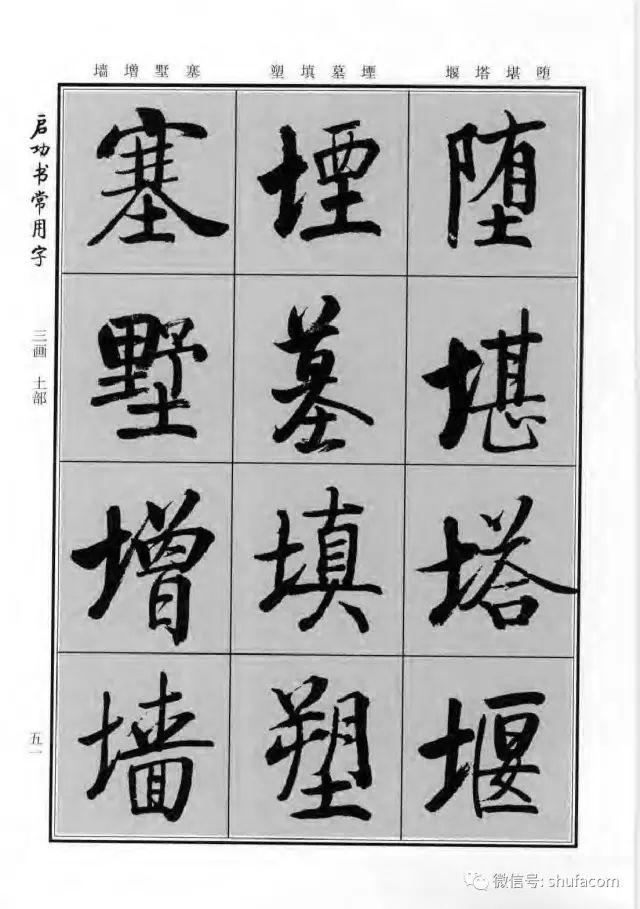 墙增墅塞 塑填墓堙 堰塔堪堕
启功书常用字
三画 土部
五一
堕
堪
塔
堰
堙
墓
填
塑
塞
墅
增
墙
微信号: shufacom